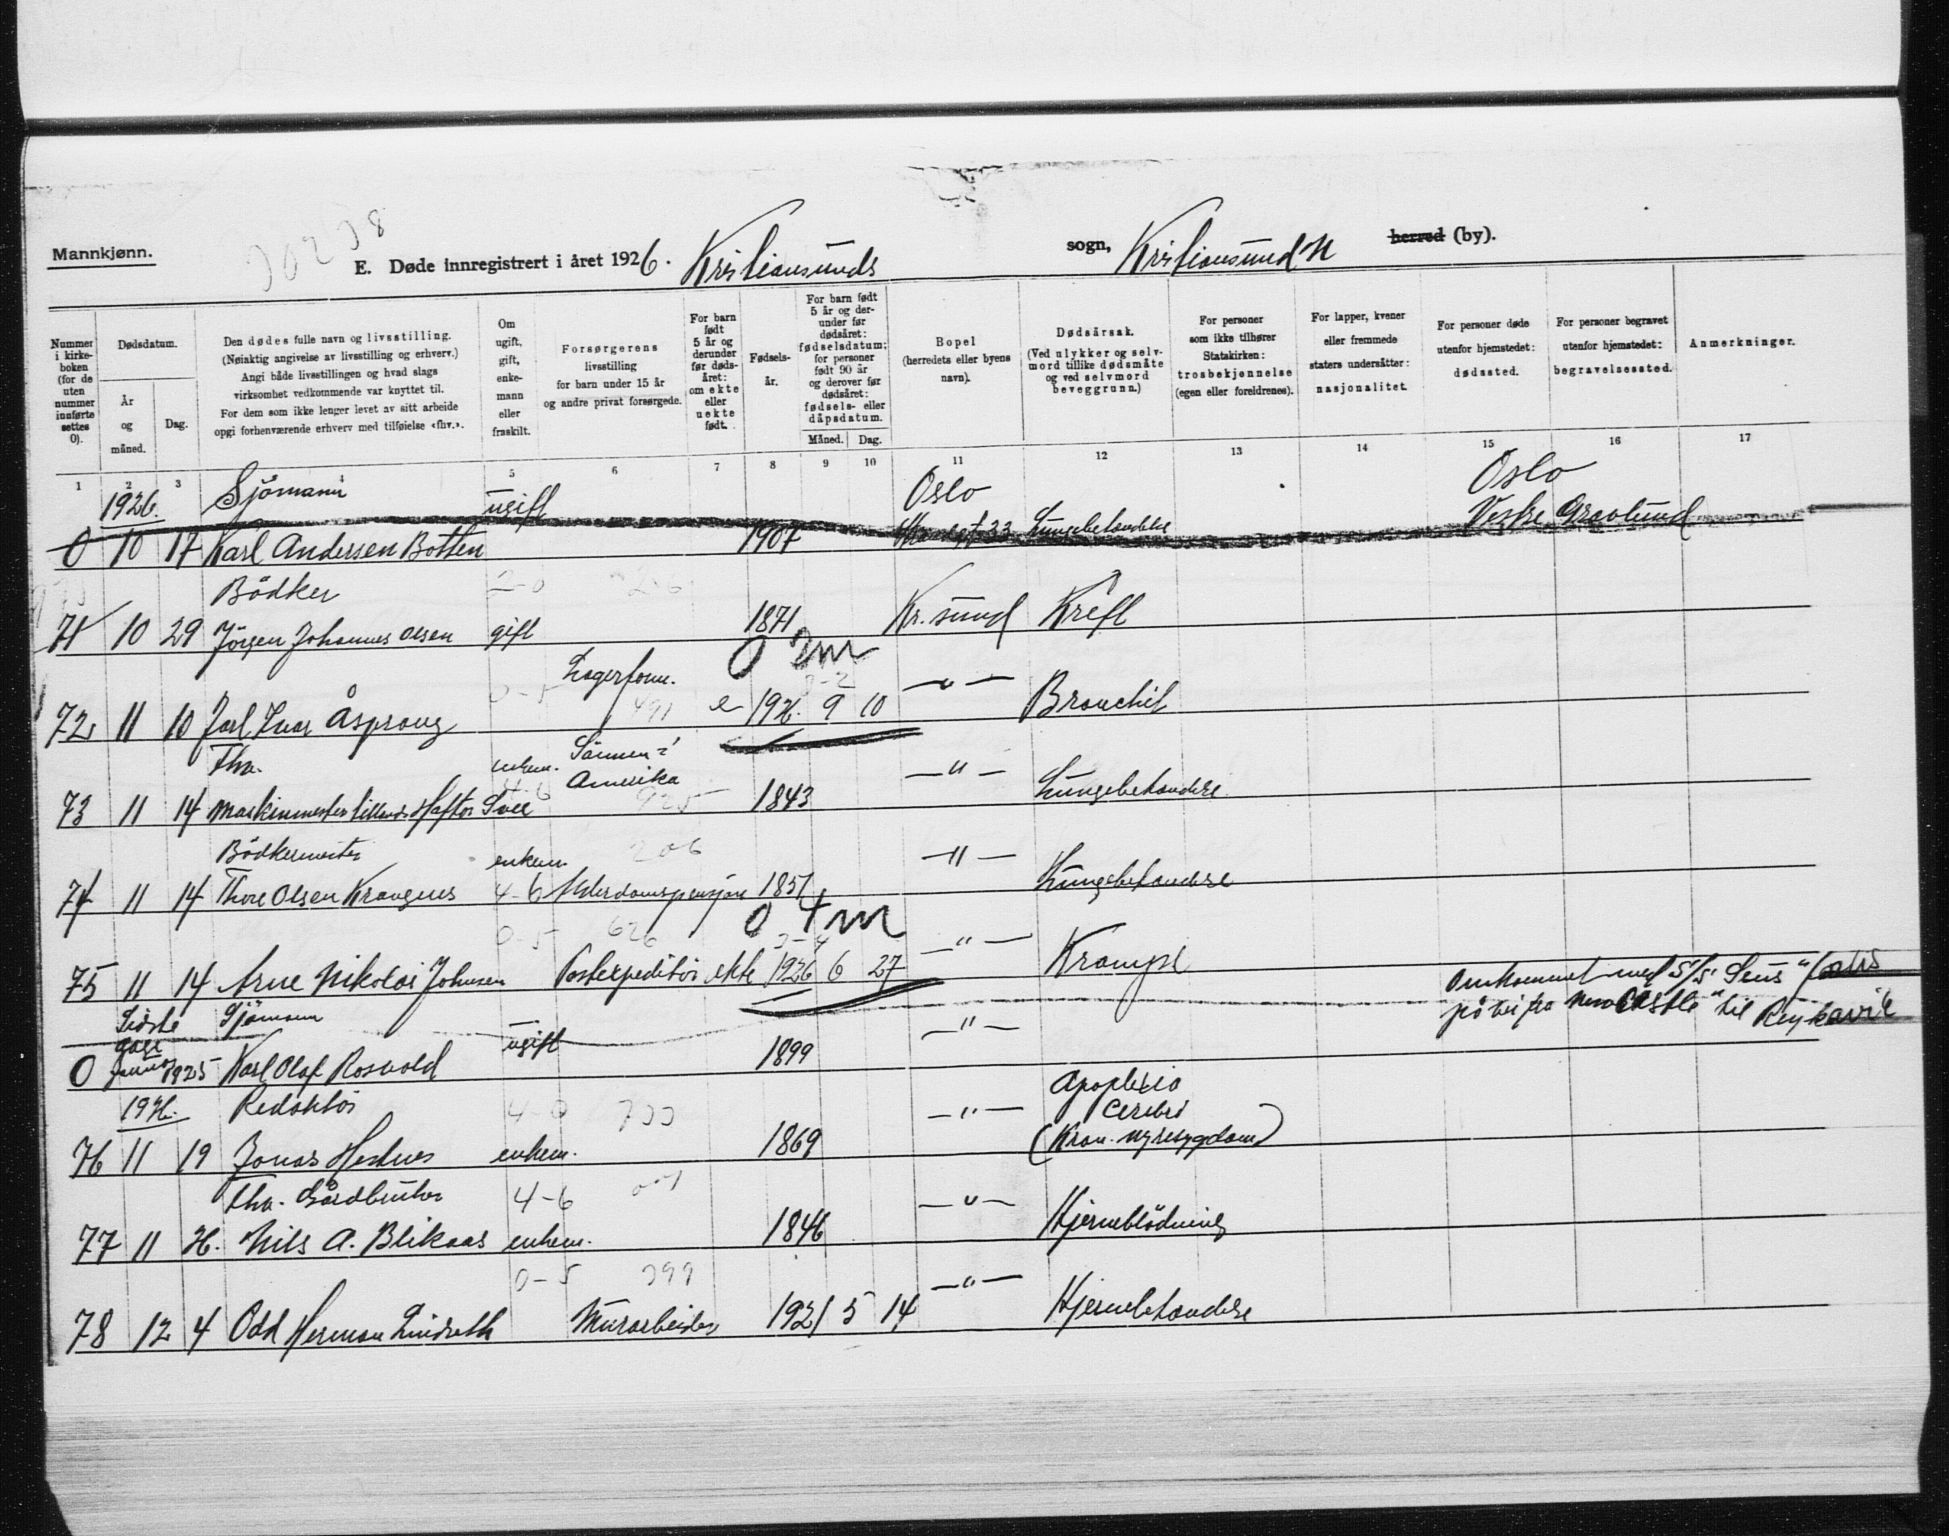 Mannkjønn.
E. Døde innregistrert i året 1926. Kristiansunds sogn, Kristiansund N herred (by).
Nummer i kirkeboken (for de uten nummer innførte settes 0).
Dødsdatum.
År og måned.
Dag.
Den dødes fulle navn og livsstilling.
(Nøiaktig angivelse av livsstilling og erhverv.)
Angi både livsstillingen og hvad slags
virksomhet vedkommende var knyttet til.
For dem som ikke lenger levet av sitt arbeide
opgi forhenværende erhverv med tilføielse «fhv.».
Om ugift, gift, enkemann eller fraskilt.
Forsørgerens
livsstilling
for barn under 15 år
og andre privat forsørgede.
For barn født 5 år og derunder før dødsåret: om ekte eller uekte født.
Fødselsår.
For barn født 5 år og derunder før dødsåret: fødselsdatum; for personer født 90 år og derover før dødsåret: fødsels- eller dåpsdatum.
Måned. Dag.
Bopel
(herredets eller byens
navn).
Dødsårsak.
(Ved ulykker og selvmord tillike dødsmåte og ved selvmord beveggrunn.)
For personer
som ikke tilhører
Statskirken:
trosbekjennelse
(egen eller foreldrenes).
For lapper, kvener
eller fremmede
staters undersåtter:
nasjonalitet.
For personer døde
utenfor hjemstedet:
dødssted.
For personer begravet
utenfor hjemstedet:
begravelsessted.
Anmerkninger.
1 2 3 5 6 7 8 9 10 11 12 13 14 15 16 17
1926. Sjömann ugift Oslo Oslo
0 10 17 Karl Andersen Botten 1907 33 Lungebetendelse Vestre Gravlund
Bödker 2-0 206
71 10 29 Jörgen Johannes Olsen gift 1871 Kr.sund Kreft
0 2m
0-5 Lagerform. 0-2
72 11 10 Jarl Ivar Åsprong 491 e 1926. 9 10 —"— Bronchit
Fhv. enkem. Sönnen i
4-6 Amerika 925
73 11 14 Maskinmester Haftor Svee 1843 —"— Lungebetendelse
Bödkermester enkem 206
74 11 14 Thore Olsen Krangnes 4-6 Alderdomspensjon 1851 —"— Lungebetendelse
0 4m
0-5 626 0-4
75 11 14 Arne Nikolai Johnsen Postexpeditör ekte 1926 6 27 —"— Krampe
Omkommet med S/S "
på vei fra New Castle til Reykavik
Sidste Sjömann
ugift —"—
0 1925 Karl Olaf Rosvold 1899
1926. Redaktör 4-0 700 Apoplexia
Cerebri
76 11 19 Jonas Hestnes enkem. 1869 —"— (Kron. nyresygdom)
Fhv. Gårdbruker 4-6
77 11 26. Nils A. Blikaas enkem. 1846 —"— Hjerneblödning
0-5 399
78 12 4 Odd Herman Lindseth Murarbeider 1921 5 14 —"— Hjernebetendelse